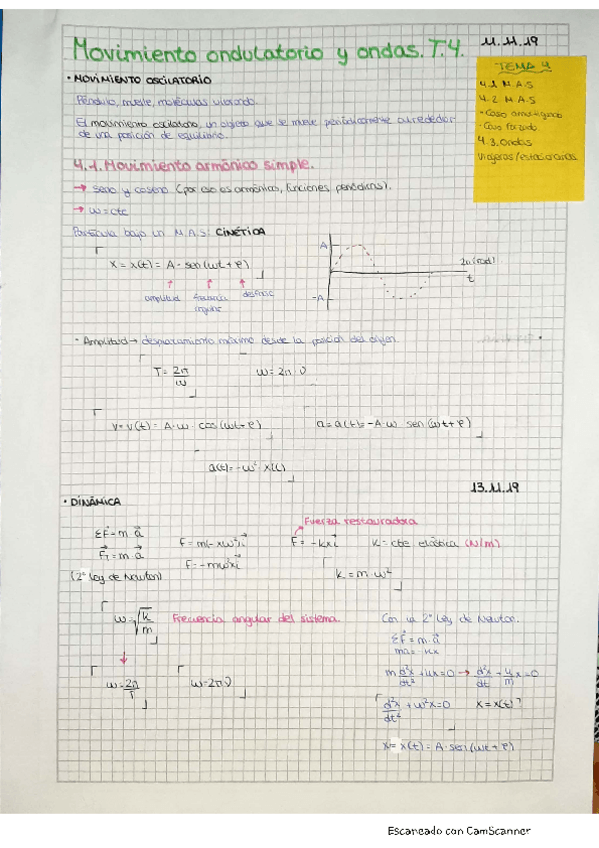 Movimiento ondulatorio y ondas. T.4.
11.11.19
TEMA 4
4.1 M.A.S
4.2 M.A.S
· Caso amortiguado
· Caso forzado
4.3. Ondas
viajeras/estacionarias
· MOVIMIENTO OSCILATORIO
Péndulo, muelle, moléculas vibrando.
El movimiento oscilatorio, un objeto que se mueve periódicamente alrededor
de una posición de equilibrio.
4.1. Movimiento armónico simple.
→ seno y coseno (por eso es armónico, funciones periódicas).
→ ω = cte
Partícula bajo un M.A.S: CINÉTICA
x = x(t) = A · sen (ωt + φ)
amplitud frecuencia desfase
angular
A
-A
2π (rad)
t
· Amplitud → desplazamiento máximo desde la posición del origen
T = 2π/ω
ω = 2π · ν
v = v(t) = A·ω · cos (ωt + φ)
a = a(t) = -A·ω sen (ωt + φ)
a(t) = -ω² x(t)
13.11.19
· DINÁMICA
Fuerza restauradora
ΣF = m · a
F = m(-xω²)i
F = -kxi
k = cte elástica (N/m)
F = m · a
F = -mω²xi
(2ª Ley de Newton)
k = m · ω²
ω = √k/m
Frecuencia angular del sistema.
Con la 2ª Ley de Newton.
ΣF = m · a
ma = -kx
m d²x/dt² + kx = 0 → d²x/dt + k/m x = 0
ω = 2π/T
ω = 2πν
d²x/dt² + ω²x = 0
x = x(t)?
x = x(t) = A · sen (ωt + φ)
Escaneado con CamScanner